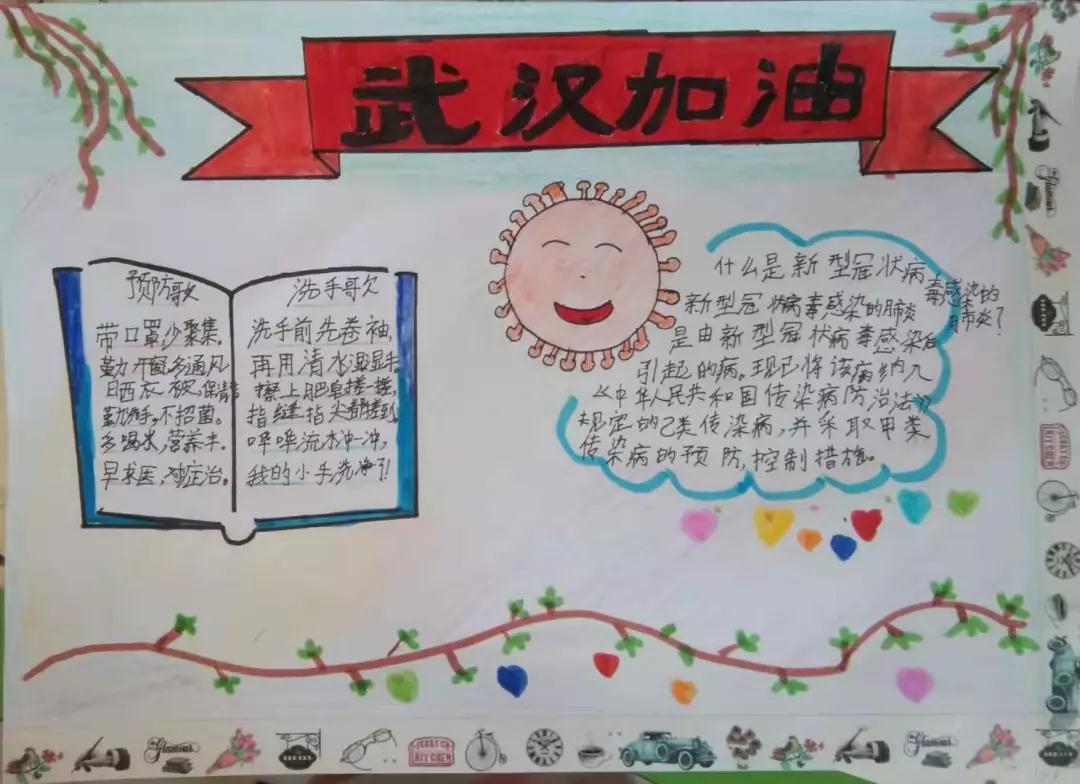 武汉加油
预防歌
带口罩少聚集。
勤开窗多通风。
日晒衣被,保清洁
勤洗手,不招菌。
多喝水,营养丰。
早求医,对症治。
洗手歌
洗手前先卷袖,
再用清水湿湿手。
擦上肥皂搓一搓,
指缝指头都搓到。
哗哗流水冲一冲,
我的小手洗净了!
什么是新型冠状病
毒感染的
肺炎?
新型冠状病毒感染的肺炎
是由新型冠状病毒感染后
引起的病。现已将该病纳入
《中华人民共和国传染病防治法》
规定的乙类传染病,并采取甲类
传染病的预防,控制措施。
Glamour
Glamour
SCRATCH
KITCHEN
Glamour
SCRATCH
KITCHEN